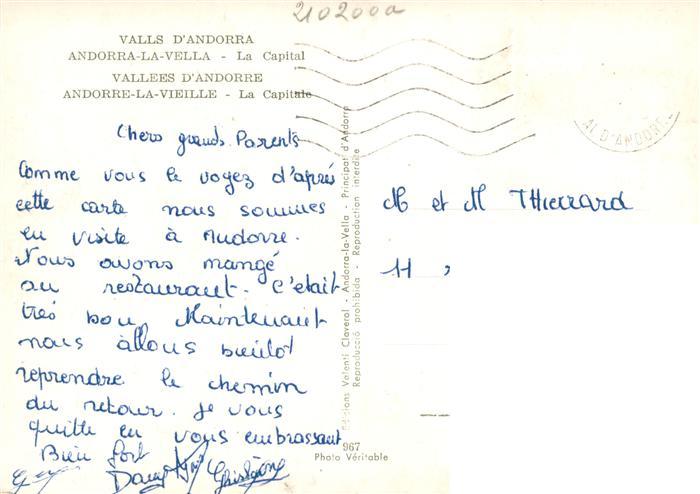 210200a
VALLS D'ANDORRA
ANDORRA-LA-VELLA - La Capital
VALLEES D'ANDORRE
ANDORRE-LA-VIEILLE - La Capitale
AL D'ANDORR
Chers grands Parents
Comme vous le voyez d'après
cette carte nous sommes
en visite à Andorre.
Nous avons mangé
au restaurant. C'était
très bon. Maintenant
nous allons bientôt
reprendre le chemin
du retour. Je vous
quitte en vous embrassant
Bien fort
Ghislaine
M et M THIERRARD
11,
Edicions Valentí Claverol - Andorra-la-Vella - Principat d'Andorra
Reproducció prohibida - Reproduction interdite
967
Photo Véritable